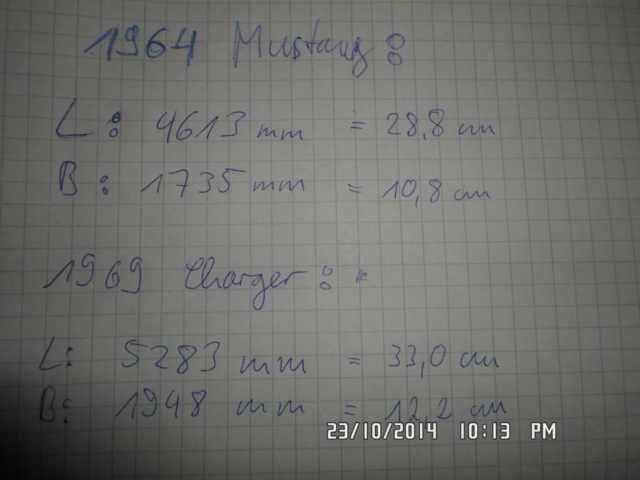 1964 Mustang:
L: 4613 mm = 28,8 cm
B: 1735 mm = 10,8 cm
1969 Charger:
L: 5283 mm = 33,0 cm
B: 1948 mm = 12,2 cm
23/10/2014 10:13 PM